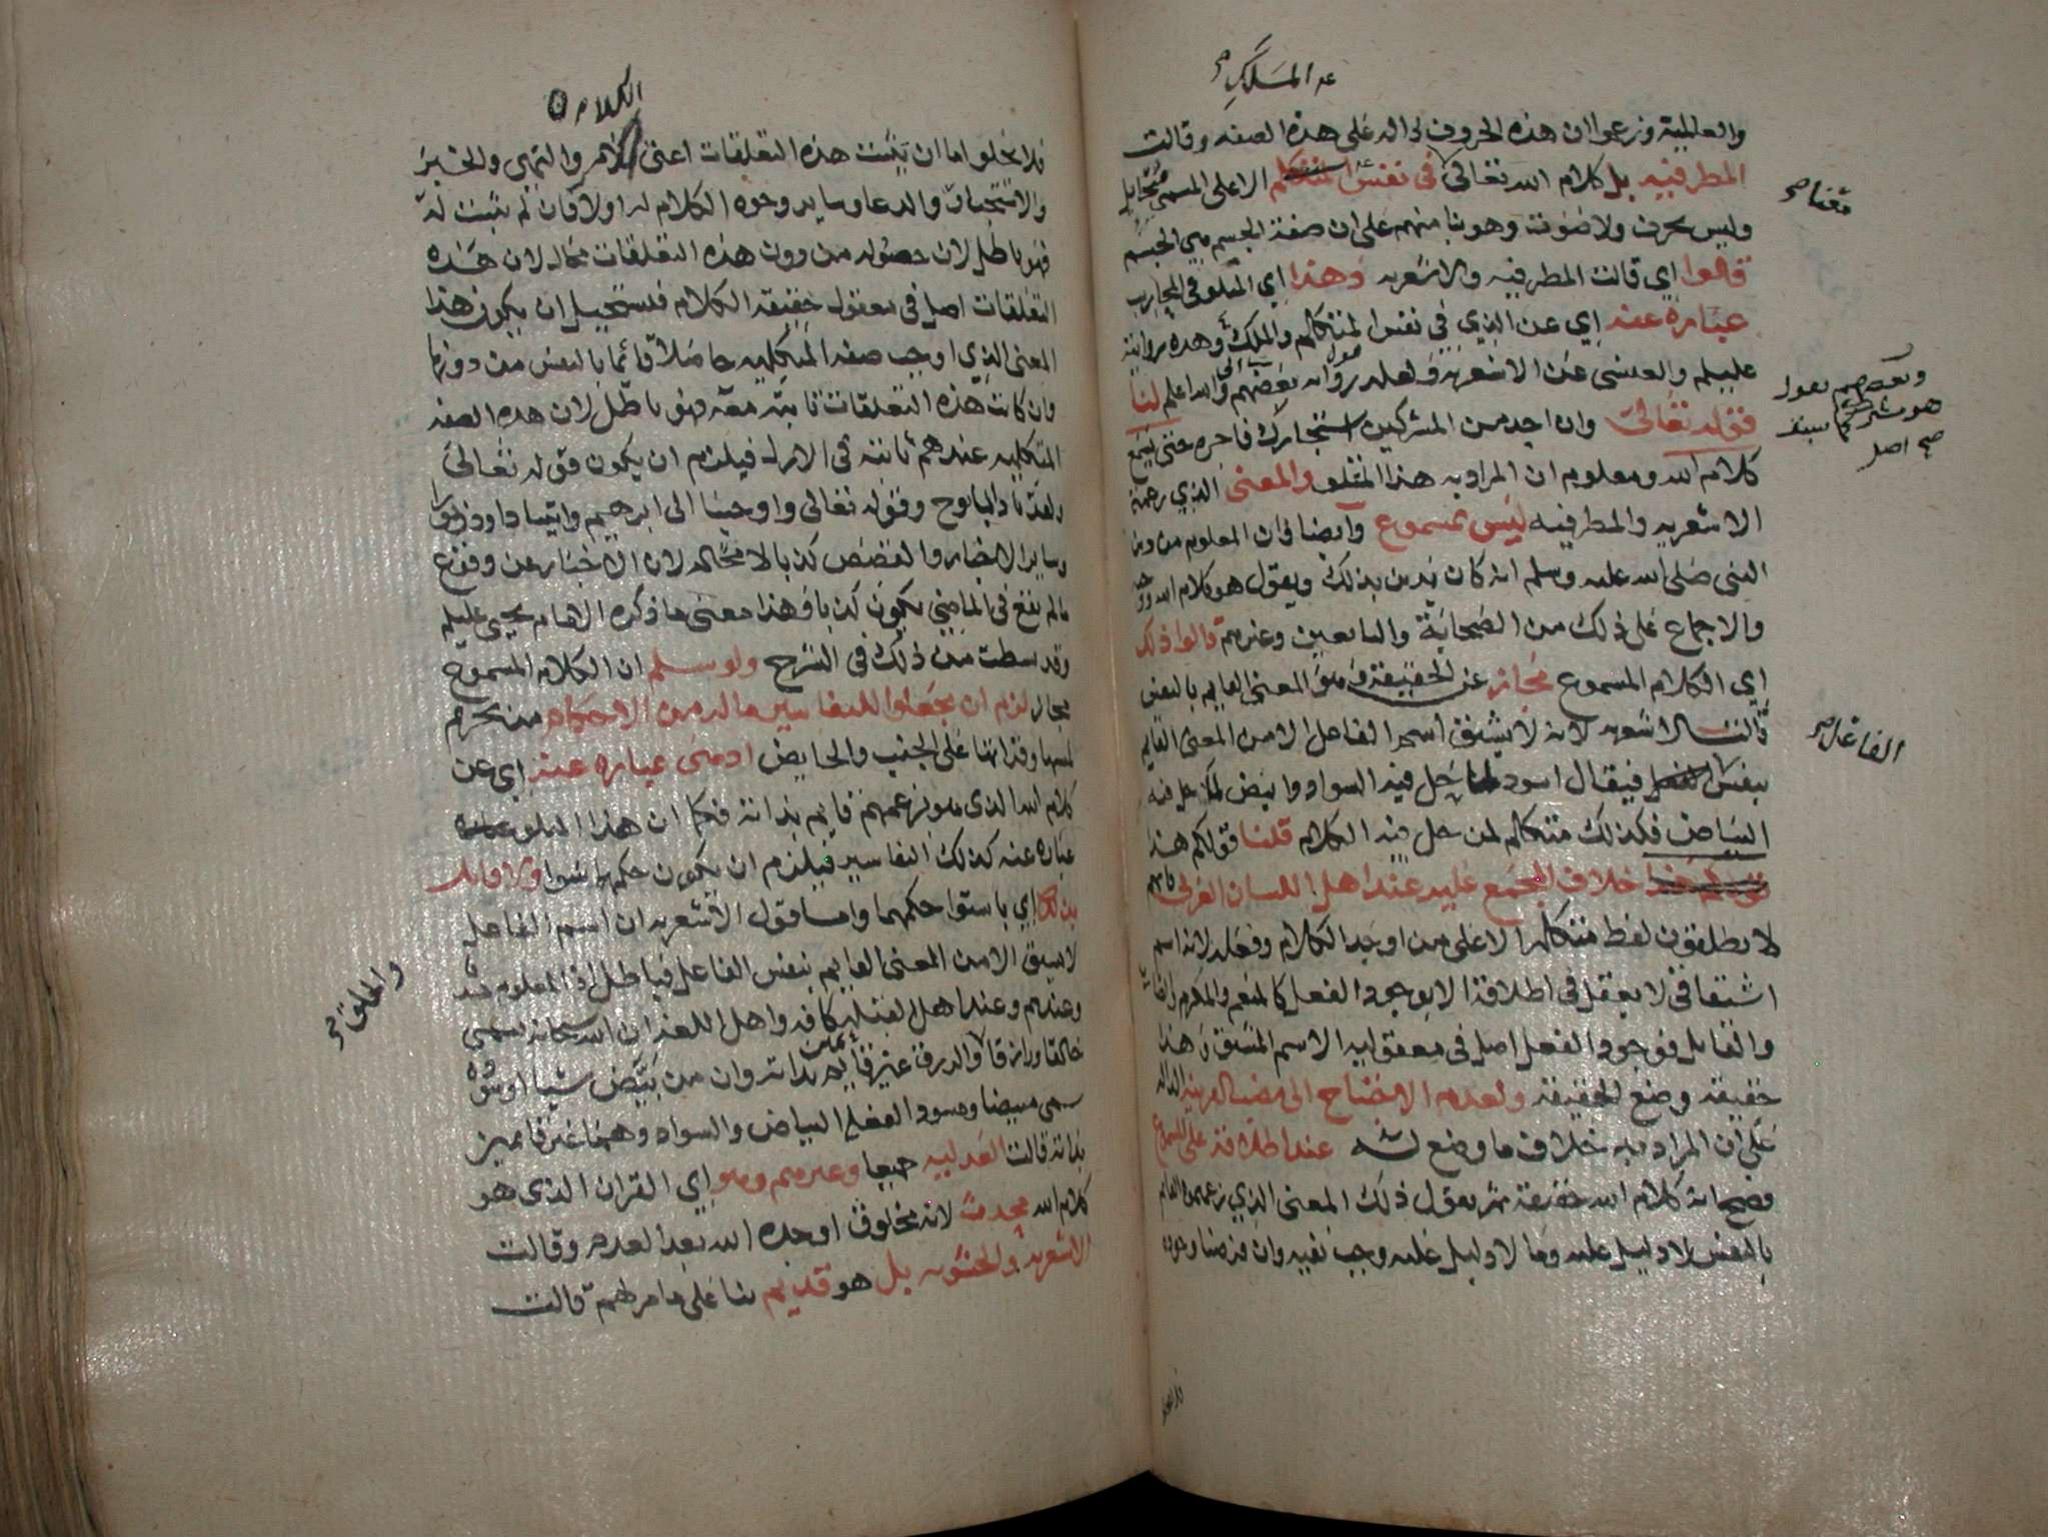 عه الملك صح
والعالمية وزعموا ان هذه الحروف دالة على هذه الصفه وقالت
المطرفيه بل كلام الله تعالى في نفس الملك الاعلى المسمى ميخايل
معنا صح
وليس بحرف ولا صوت وهو بنا منهم على ان صفة الجسم هي الجسم
قالوا اي قالت المطرفيه والاشعريه وهذا اي المتلو في المحاريب
عبارة عنه اي عن الذي في نفس المتكلم والملك وهذه رواية
عليلم والعنسي عن الاشعريه ولعله رواية بعضهم والله اعلم لنا
وبعضهم يقول
هو
كما سبق
صح اصل
قوله تعالى وان احد من المشركين استجارك فاجره حتى يسمع
كلام الله ومعلوم ان المراد به هذا المتلو والمعنى الذي زعمته
الاشعريه والمطرفيه ليس بمسموع وايضا فان المعلوم من دين
النبي صلى الله عليه وسلم انه كان يدين بذلك ويقول هو كلام الله
والاجماع على ذلك من الصحابة والتابعين وغيرهم قالوا ذلك
اي الكلام المسموع مجاز عن الحقيقة وهو المعنى القايم بالنفس
قالت الاشعريه لانه لا يشتق اسم الفاعل الا من المعنى القايم
الفاعل صح
بنفس فيقال اسود لما حل فيه السواد وابيض لما حل فيه
البياض فكذلك متكلم لمن حل فيه الكلام قلنا قولكم هذا
خلاف المجمع عليه عند اهل اللسان العربي فانهم
لا يطلقون لفظ متكلم الا على من اوجد الكلام وفعله لانه اسم
اشتقاقي لا يعقل في اطلاقه الا بوجود الفعل كالمنعم والمكرم والضارب
والقاتل فوجود الفعل اصل في معقولية الاسم المشتق وهذا
حقيقة وضع الحقيقة ولعدم الاحتياج الى نصب القرينه الداله
على ان المراد به خلاف ما وضع له عند اطلاقه على المسموع
فصح انه كلام الله حقيقة ثم نقول ذلك المعنى الذي زعمتم القايم
بالنفس لا دليل عليه وما لا دليل عليه وجب نفيه وان فرضنا وجوده
فلا يخلو
الكلام
فلا يخلو اما ان يثبت هذه التعلقات اعني الامر والنهي والخبر
والاستخبار والدعا وساير وجوه الكلام له اولا فان لم يثبت له
فهو باطل لان حصوله من دون هذه التعلقات محال لان هذه
التعلقات اصل في معقول حقيقة الكلام فيستحيل ان يكون هذا
المعنى الذي اوجب صفة المتكلميه حاصلا قائما بالنفس من دونها
وان كانت هذه التعلقات ثابتة معه فهو باطل لان هذه الصفه
المتكلميه عندهم ثابتة في الازل فيلزم ان يكون قوله تعالى
ولقد نادانا نوح وقوله تعالى واوحينا الى ابرهيم واتينا داود زبورا
وساير الاخبار والقصص كذبا لا محاله لان الاخبار عن وقوع
ما لم يقع في الماضي يكون كذبا وهذا معنى ما ذكره الامام يحيى عليلم
وقد بسطت من ذلك في الشرح ولو سلم ان الكلام المسموع
مجاز لزم ان يجعلوا للتفاسير ماله من الاحكام من تحريم
لمسها وقراتها على الجنب والحايض اذ هي عبارة عنه اي عن
كلام الله الذي هو بزعمهم قايم بذاته فكما ان هذا المتلو
عبارة عنه كذلك التفاسير فيلزم ان يكون حكمهما سوا ولا قايل
بذلك اي باستوا حكمهما واما قول الاشعريه ان اسم الفاعل
لا يسبق الا من المعنى القايم بنفس الفاعل فباطل اذ المعلوم عندنا
وعندهم وعند اهل القبله كافه واهل اللغه ان الله سبحانه يسمى
خالقا ورازقا والرزق غير قايمين بذاته وان من بيض شيا او سوده
والخلق صح
سمي مبيضا ومسودا لفعل البياض والسواد وهما غير قايمين
بذاته قالت العدليه جميعا وغيرهم وهو اي القران الذي هو
كلام الله محدث لانه مخلوق اوجده الله بعد العدم وقالت
الاشعريه والحشويه بل هو قديم بنا على ما مر لهم قالت